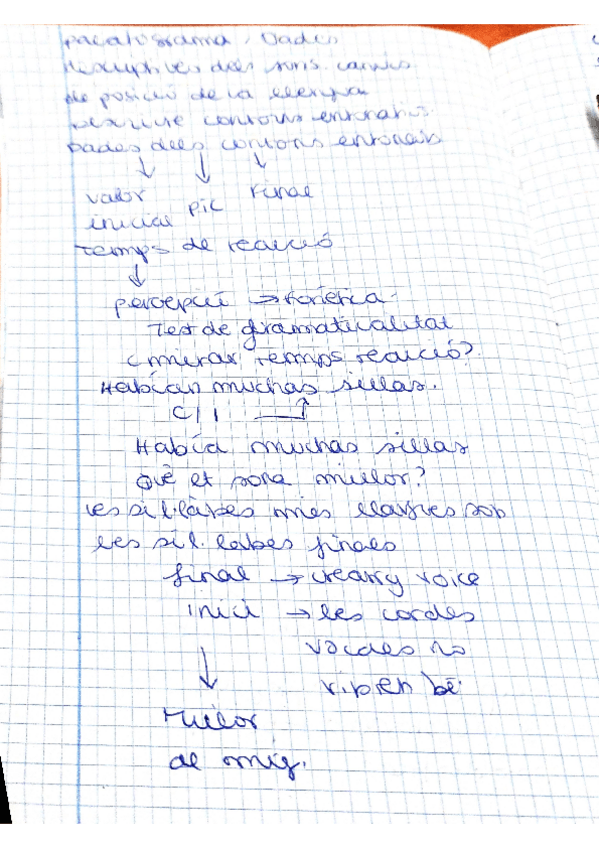 palatograma. Dades
descriptives dels sons. canvis
de posició de la llengua
contorns entonatius.
Dades dels contorns entonatius
↓ ↓ ↓
valor pic final
inicial
temps de reacció
↓
percepció → fonètica
Test de gramaticalitat
(mirar temps reacció?
Habían muchas sillas.
C/I
Había muchas sillas
Què et sona millor?
les síl·labes més llargues son
les síl·labes finals
final → creaky voice
inici → les cordes
vocals no
vibren bé
↓
Millor
de mig.